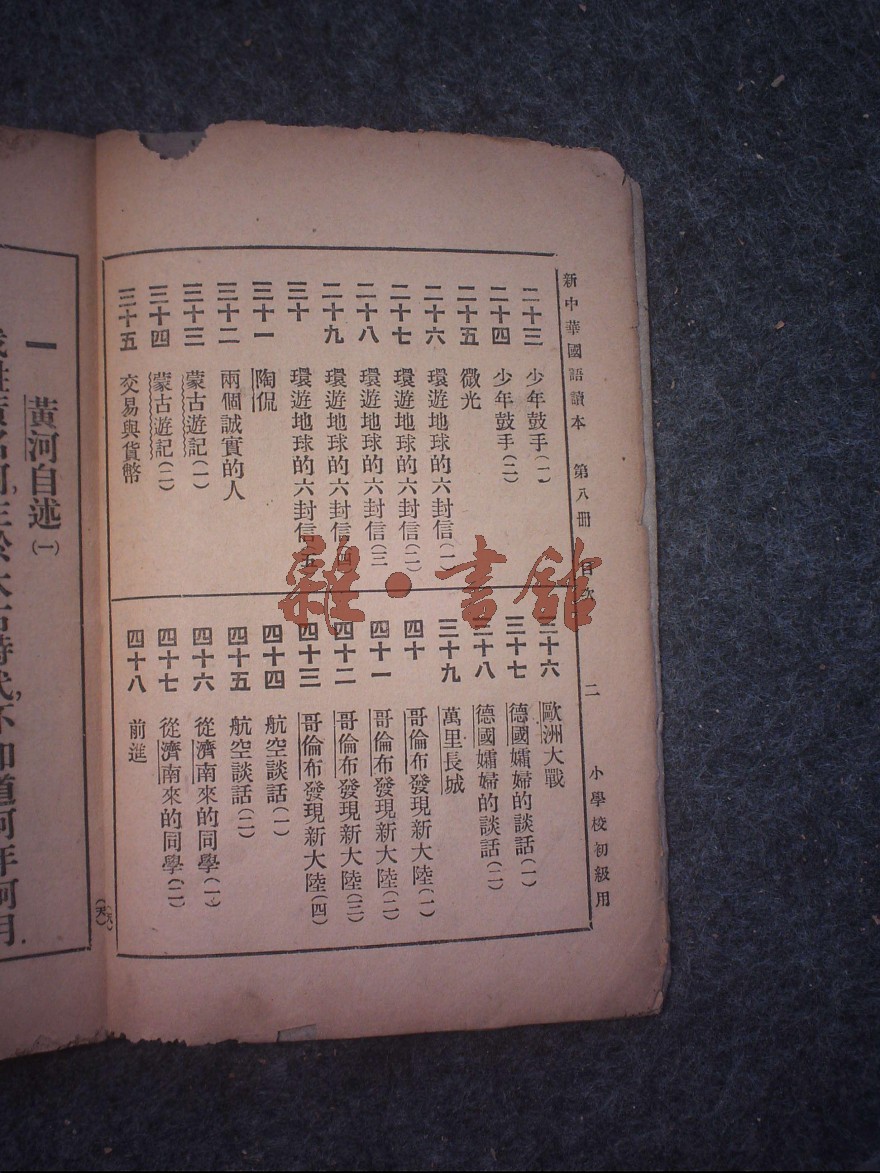 新中華國語讀本　第八冊　目次　二　小學校初級用
二十三　少年鼓手(一)
二十四　少年鼓手(二)
二十五　微光
二十六　環遊地球的六封信(一)
二十七　環遊地球的六封信(二)
二十八　環遊地球的六封信(三
二十九　環遊地球的六封信(四
三十　環遊地球的六封信(五
三十一　陶侃
三十二　兩個誠實的人
三十三　蒙古遊記(一)
三十四　蒙古遊記(二)
三十五　交易與貨幣
三十六　歐洲大戰
三十七　德國孀婦的談話(一)
三十八　德國孀婦的談話(二)
三十九　萬里長城
四十　哥倫布發現新大陸(一)
四十一　哥倫布發現新大陸(二)
四十二　哥倫布發現新大陸(三)
四十三　哥倫布發現新大陸(四)
四十四　航空談話(一)
四十五　航空談話(二)
四十六　從濟南來的同學(一)
四十七　從濟南來的同學(二)
四十八　前進
一　黃河自述(一)
河,生於太古時代,不知道何年何月.
雜・書館